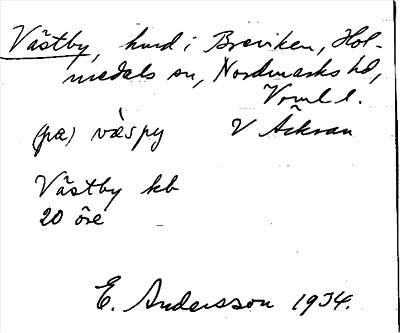 Västby, hmd i Breviken, Hol-
medals sn, Nordmarks hd,
Vrml l.
(pa) vàspy V Äckran
Västby kb
20 öre
E. Andersson 1934.